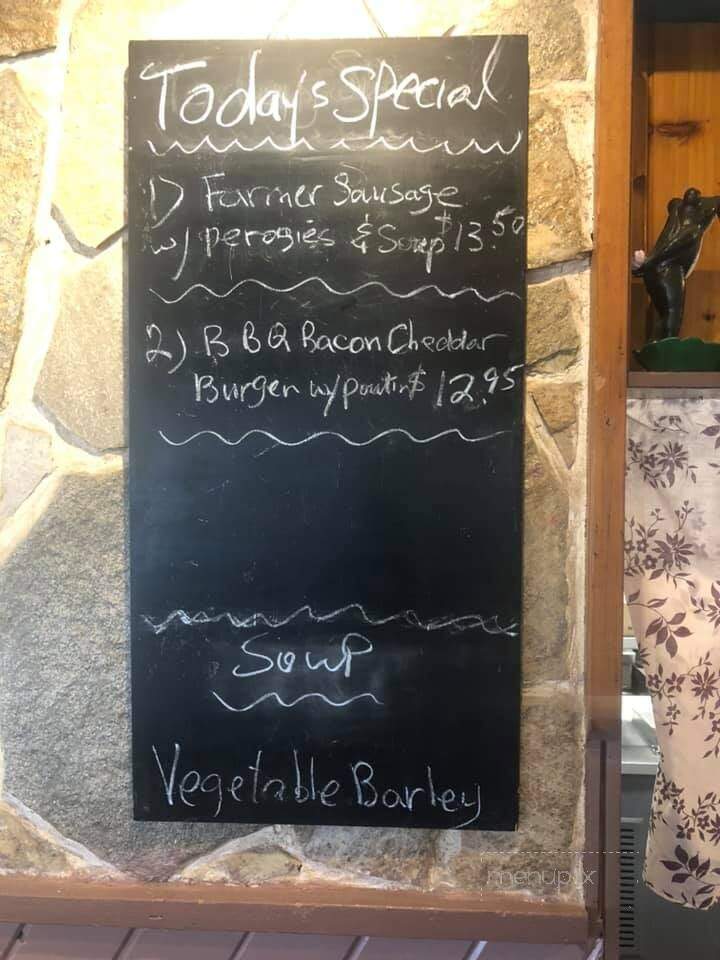 Today's Special
1) Farmer Sausage
w/ perogies & Soup $13.50
2) BBQ Bacon Cheddar
Burger w/poutin $12.95
Soup
Vegetable Barley
menupix